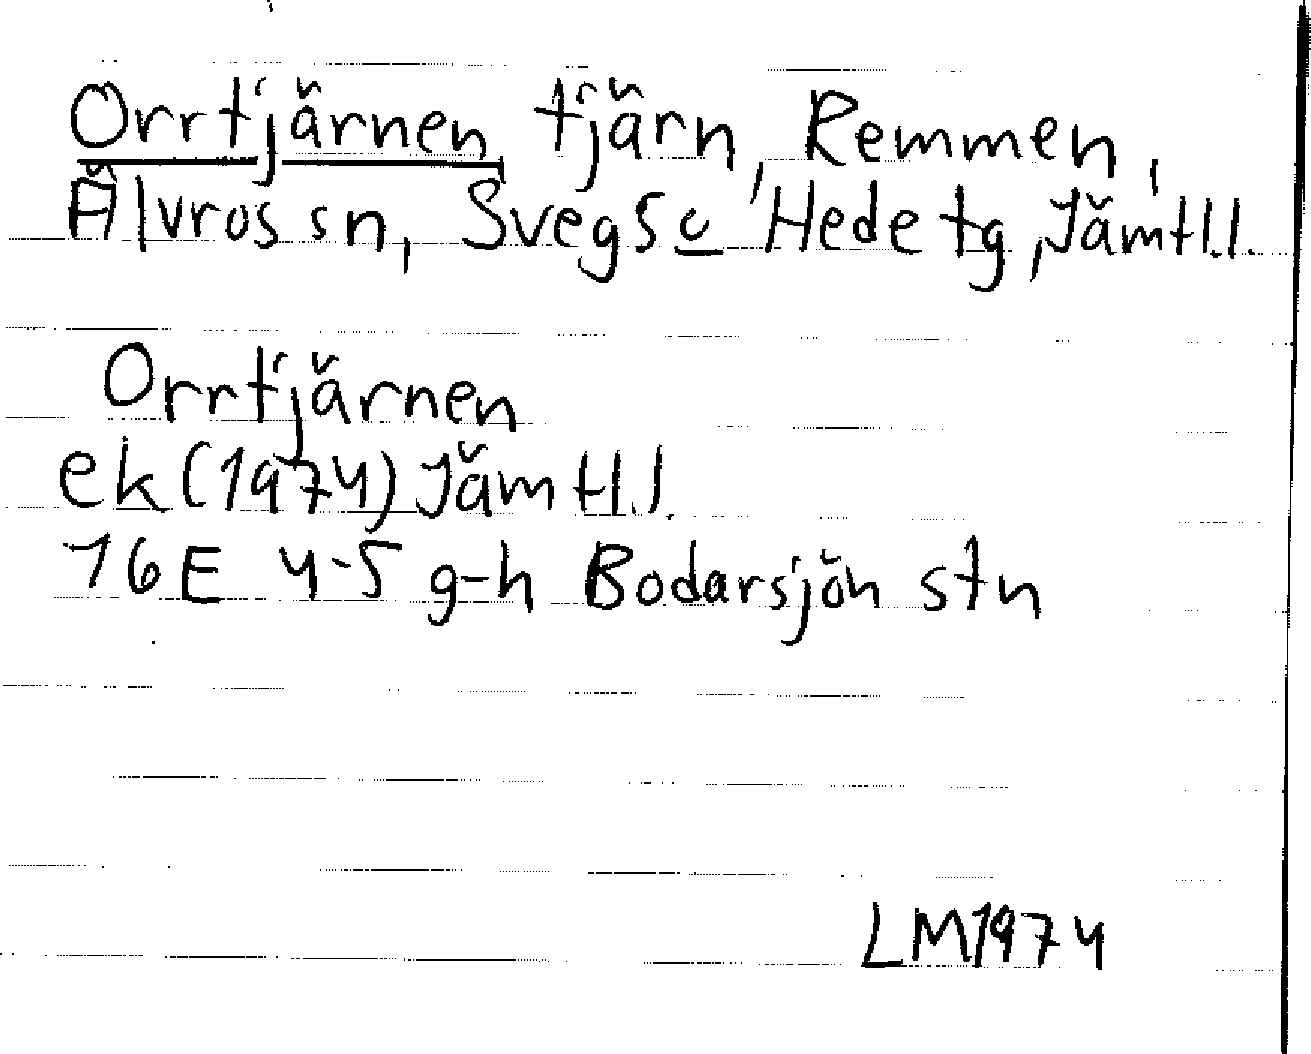 Orrtjärnen, tjärn, Remmen,
Älvros sn, Svegs o Hede tg, Jämtl.l.
Orrtjärnen
ek (1974) Jämtl.l.
16E 4-5 g-h Bodarsjön stn
LM1974